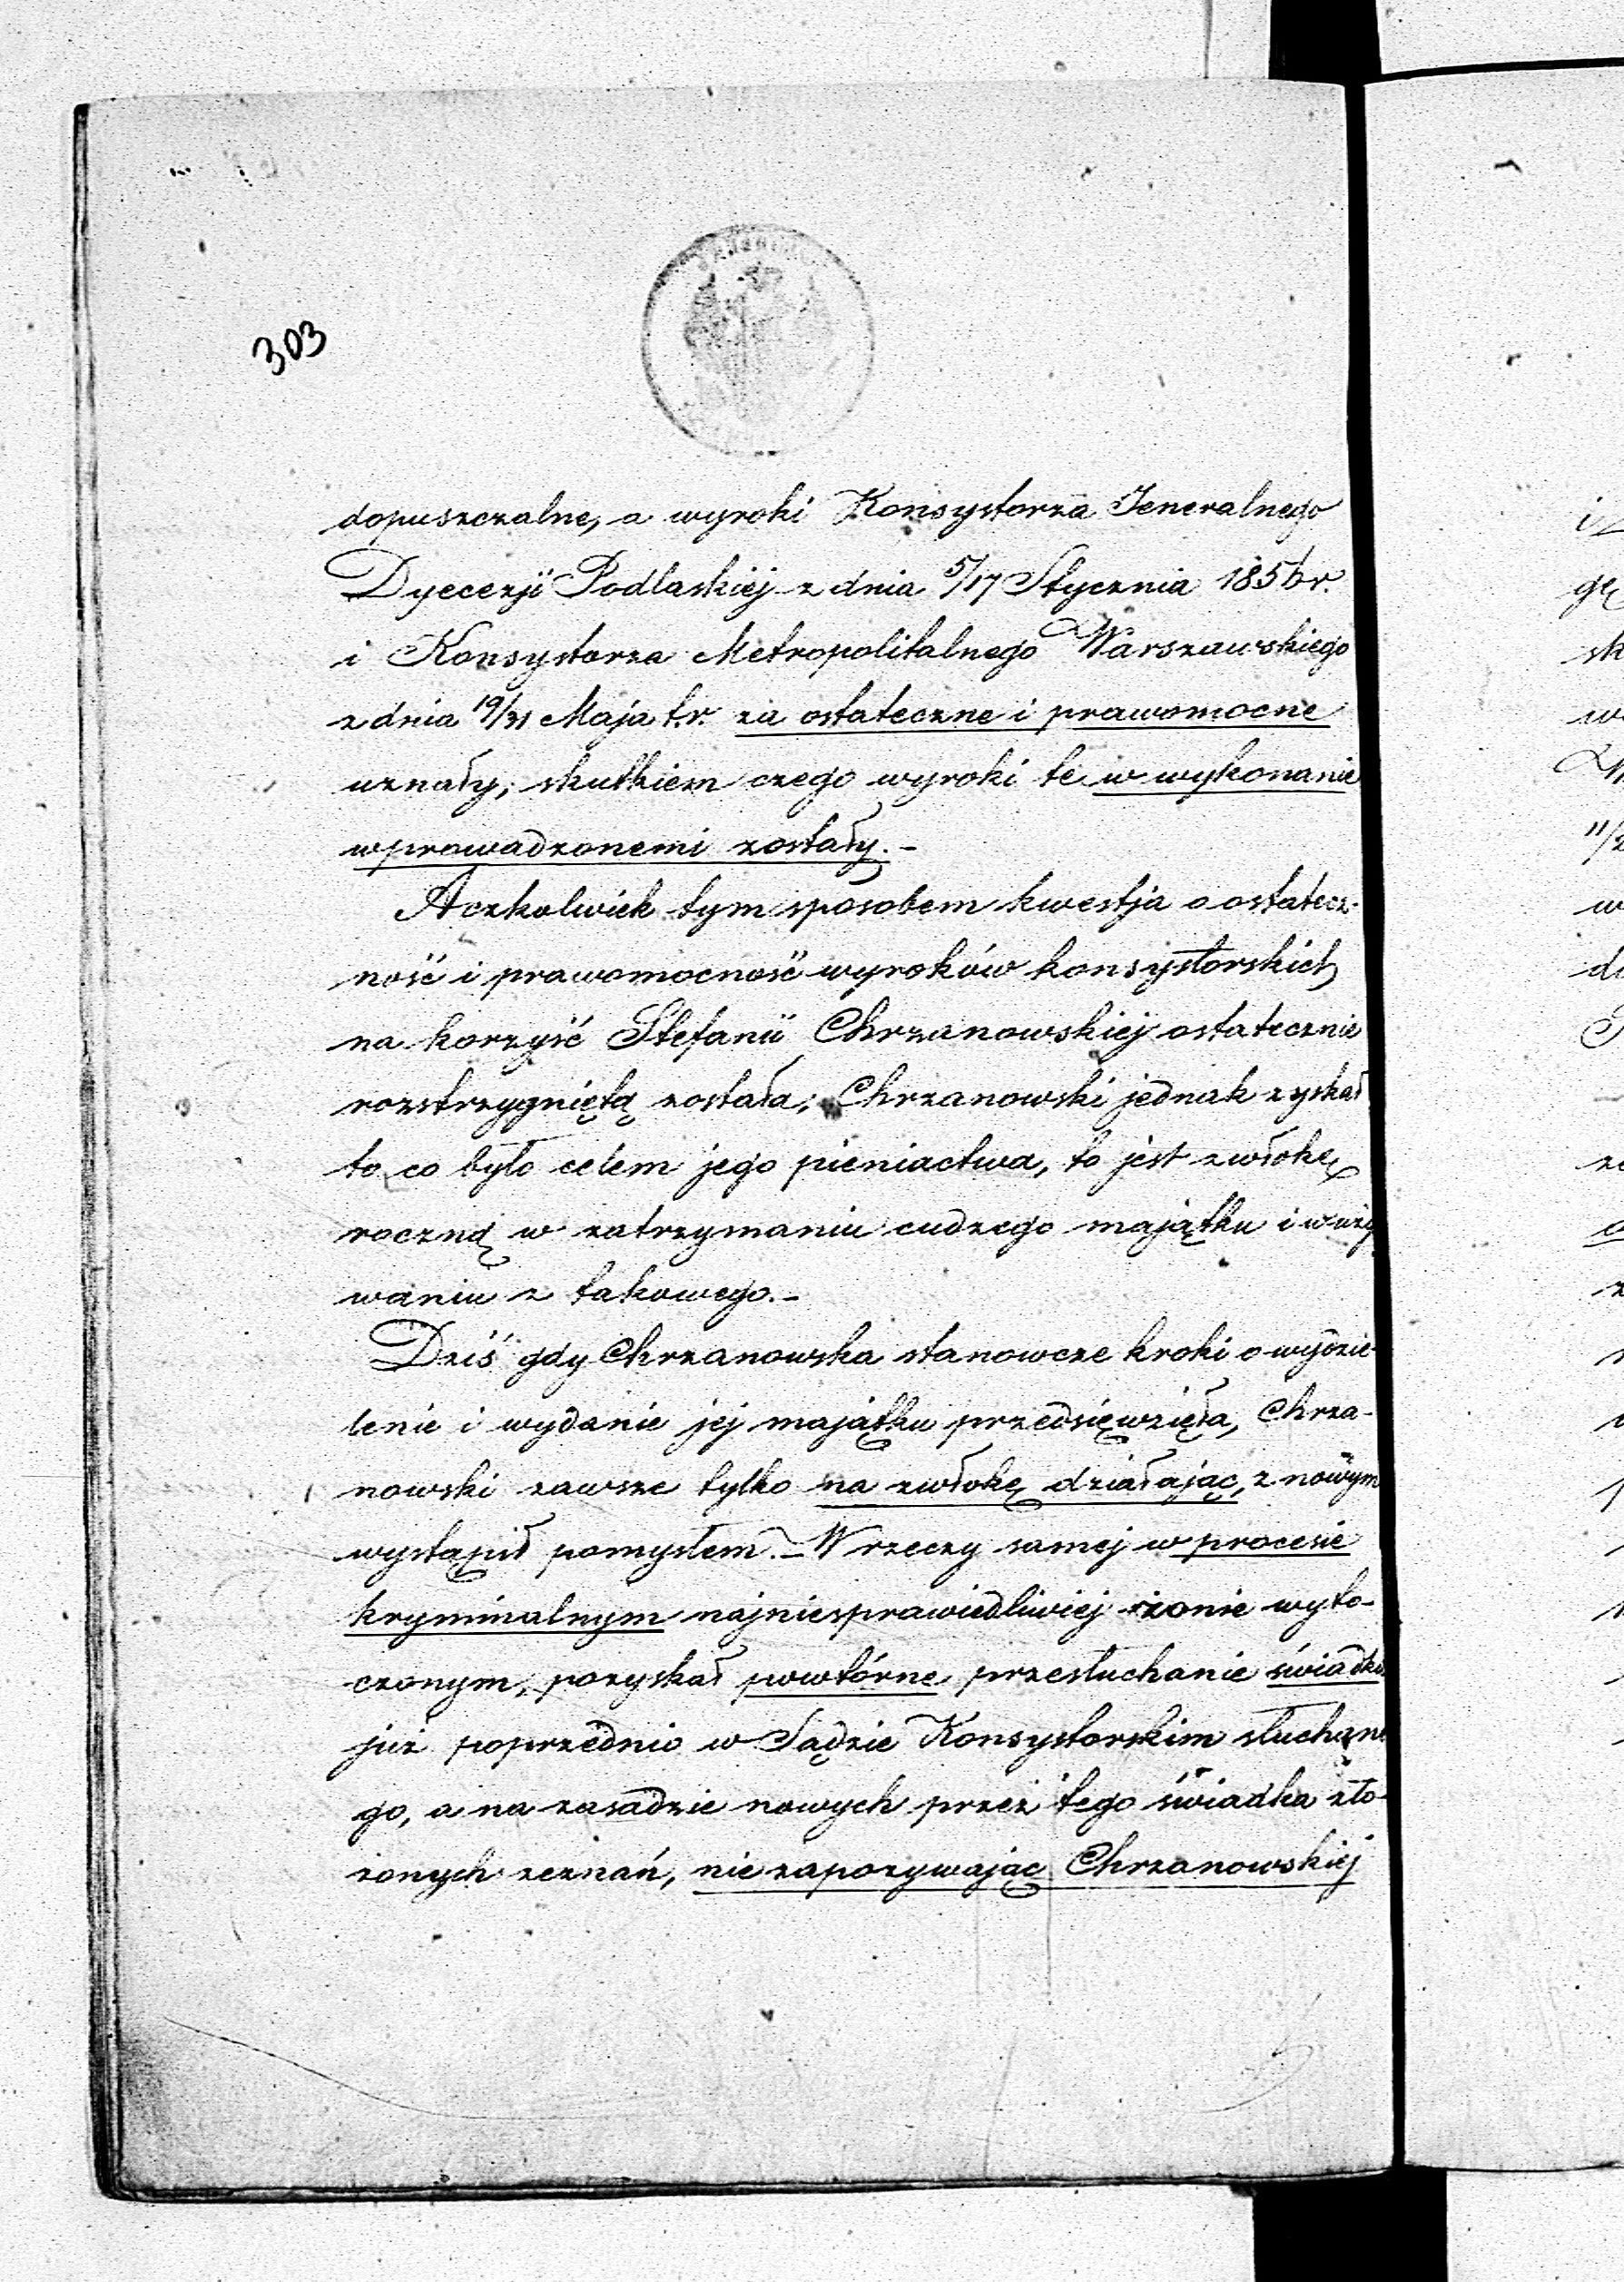 303
dopuszczalne, a wyroki Konsystorza Jeneralnego
Dyecezji Podlaskiej z dnia 5/17 Stycznia r.
i Konsystorza Metropolitalnego Warszawskiego
z dnia 19/31 Maja t.r. za ostateczne i prawomocne
uznały, skutkiem czego wyroki te w wykonanie
wprowadzonemi zostały. -
Aczkolwiek tym sposobem kwestja o ostatecz-
ność i prawomocność wyroków konsystorskich
na korzyść Stefanii Chrzanowskiej ostatecznie
rozstrzygniętą została; Chrzanowski jednak zyskał
to co było celem jego pieniactwa, to jest zwłokę
roczną w zatrzymaniu cudzego majątku i w uży
waniu z takowego. -
Dziś gdy Chrzanowska stanowcze kroki o wydzie-
lenie i wydanie jej majątku przedsięwzięła, Chrza-
nowski zawsze tylko na zwłokę działając, z nowym
wystąpił pomysłem. - W rzeczy samej w procesie
kryminalnym najniesprawiedliwiej żonie wyto-
czonym, pozyskał powtórne przesłuchanie świadka
już poprzednio w Sądzie Konsystorskim słuchane
go, a na zasadzie nowych przez tego świadka zło-
żonych zeznań, nie zapozywając Chrzanowskiej